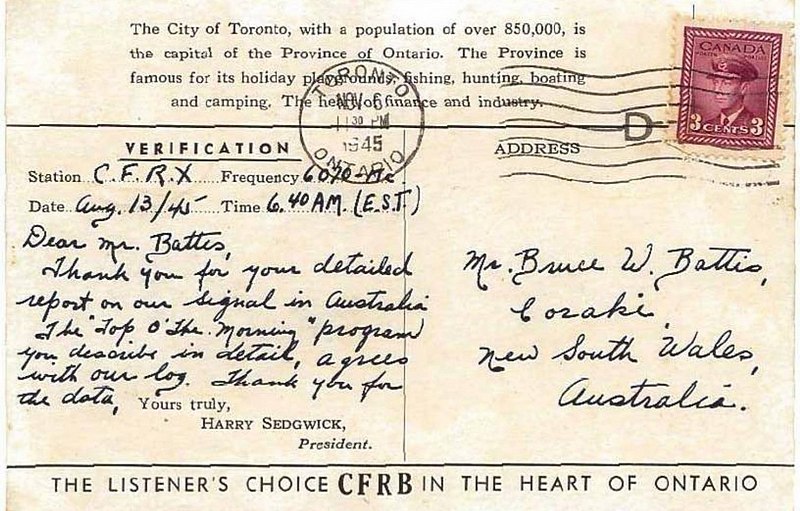 The City of Toronto, with a population of over 850,000, is
the capital of the Province of Ontario. The Province is
famous for its holiday playgrounds, fishing, hunting, boating
and camping. The heart of finance and industry.
TORONTO
NOV 6
11 30 PM
1945
ONTARIO
CANADA
POSTES POSTAGE
3 CENTS 3
D
VERIFICATION
Station C.F.R.X. Frequency 6070-Kc
Date Aug. 13/45 Time 6.40 AM. (E.S.T.)
Dear Mr. Battis,
Thank you for your detailed
report on our signal in Australia
The "Top O' The Morning" program
you describe in detail, agrees
with our log. Thank you for
the data,
Yours truly,
HARRY SEDGWICK,
President.
ADDRESS
Mr. Bruce W. Battis,
Coraki,
New South Wales,
Australia.
THE LISTENER'S CHOICE CFRB IN THE HEART OF ONTARIO